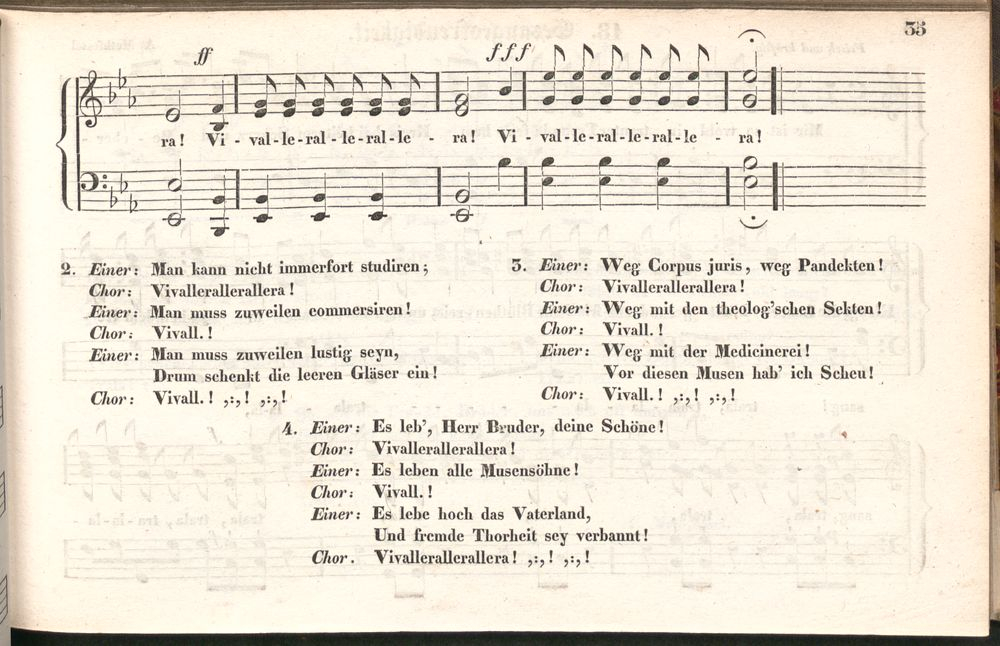 35
ff
fff
ra! Vi - val-le-ral-le-ral-le - ra! Vi - val-le-ral-le-ral-le - ra!
2. Einer: Man kann nicht immerfort studiren;
Chor: Vivallerallerallera!
Einer: Man muss zuweilen commersiren!
Chor: Vivall.!
Einer: Man muss zuweilen lustig seyn,
Drum schenkt die leeren Gläser ein!
Chor: Vivall.! ,:,! ,:,!
3. Einer: Weg Corpus juris, weg Pandekten!
Chor: Vivallerallerallera!
Einer: Weg mit den theolog'schen Sekten!
Chor: Vivall.!
Einer: Weg mit der Medicinerei!
Vor diesen Musen hab' ich Scheu!
Chor: Vivall.! ,:,! ,:,!
4. Einer: Es leb', Herr Bruder, deine Schöne!
Chor: Vivallerallerallera!
Einer: Es leben alle Musensöhne!
Chor: Vivall.!
Einer: Es lebe hoch das Vaterland,
Und fremde Thorheit sey verbannt!
Chor. Vivallerallerallera! ,:,! ,:,!